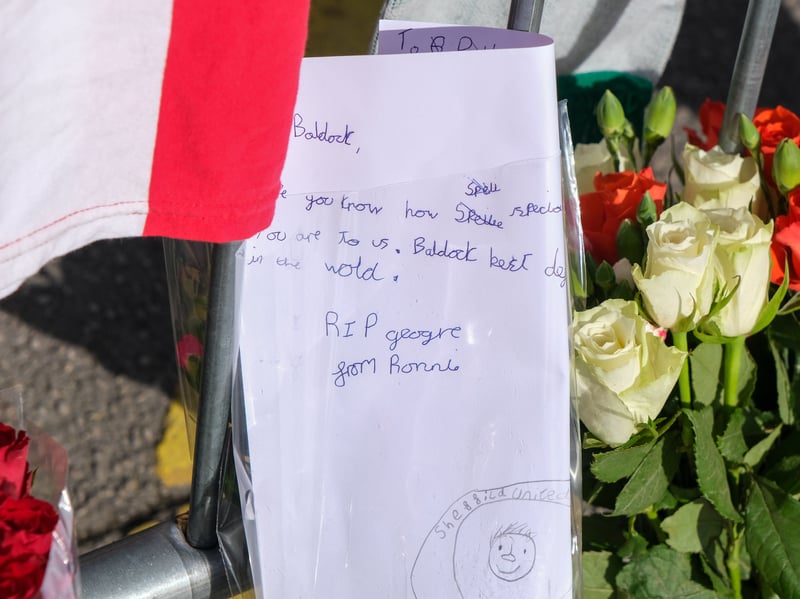 To
Baldock,
you know how Spell Spelle
you are To us. Baldock best def
in the wold.
RIP geogre
from Ronnie
Sheffild United